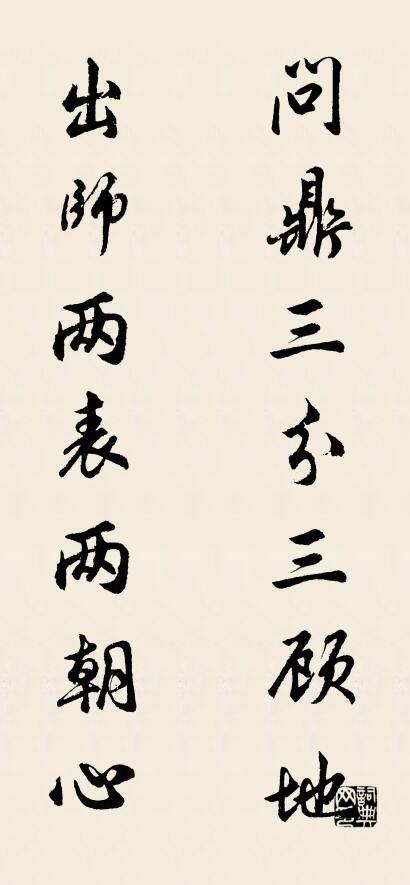 问鼎三分三顾地
出師两表两朝心